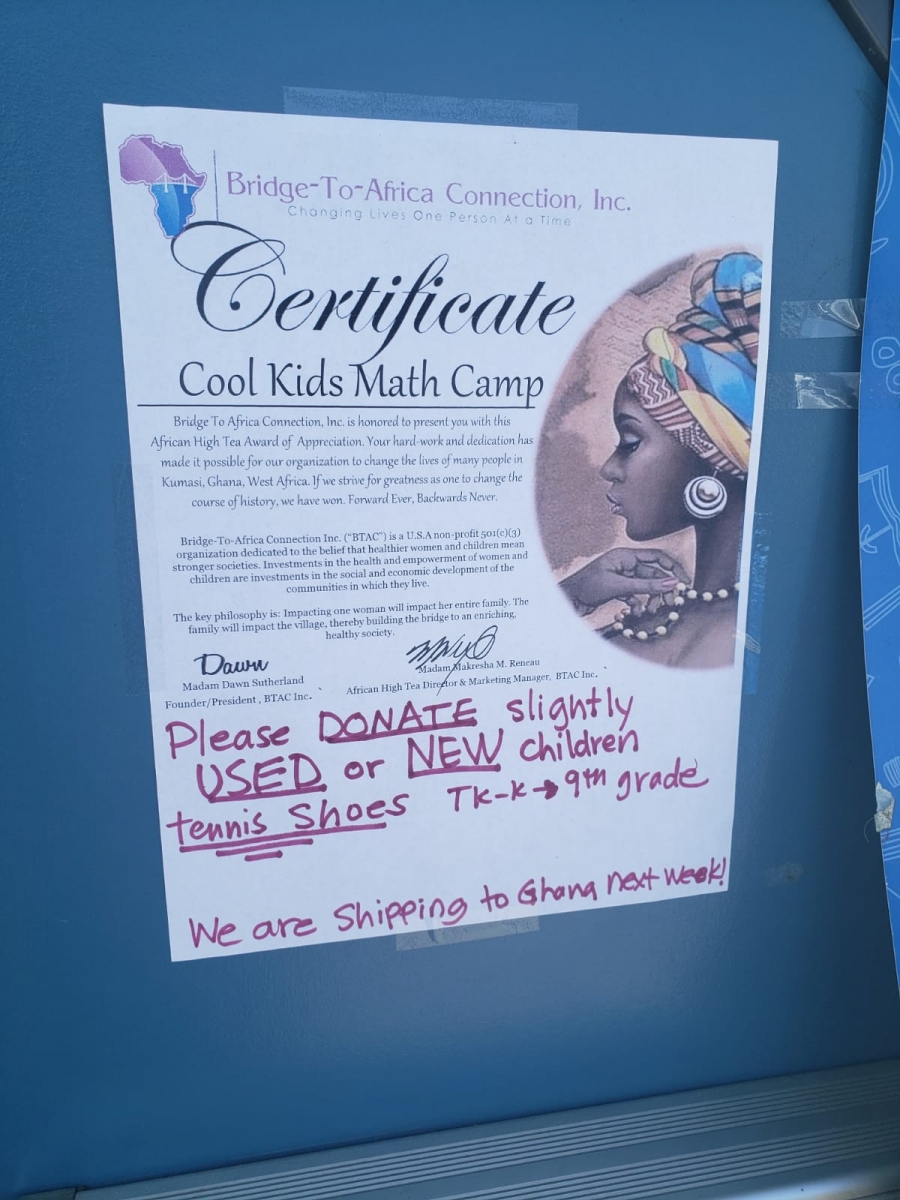 Bridge-To-Africa Connection, Inc.
Changing Lives One Person At a Time
Certificate
Cool Kids Math Camp
Bridge To Africa Connection, Inc. is honored to present you with this
African High Tea Award of Appreciation. Your hard-work and dedication has
made it possible for our organization to change the lives of many people in
Kumasi, Ghana, West Africa. If we strive for greatness as one to change the
course of history, we have won. Forward Ever, Backwards Never.
Bridge-To-Africa Connection Inc. ("BTAC") is a U.S.A non-profit 501(c)(3)
organization dedicated to the belief that healthier women and children mean
stronger societies. Investments in the health and empowerment of women and
children are investments in the social and economic development of the
communities in which they live.
The key philosophy is: Impacting one woman will impact her entire family. The
family will impact the village, thereby building the bridge to an enriching,
healthy society.
Dawn
Madam Dawn Sutherland
Founder/President , BTAC Inc.
Madam Makresha M. Reneau
African High Tea Director & Marketing Manager, BTAC Inc.
Please DONATE slightly
USED or NEW children
tennis Shoes TK-K→9th grade
We are Shipping to Ghana next week!